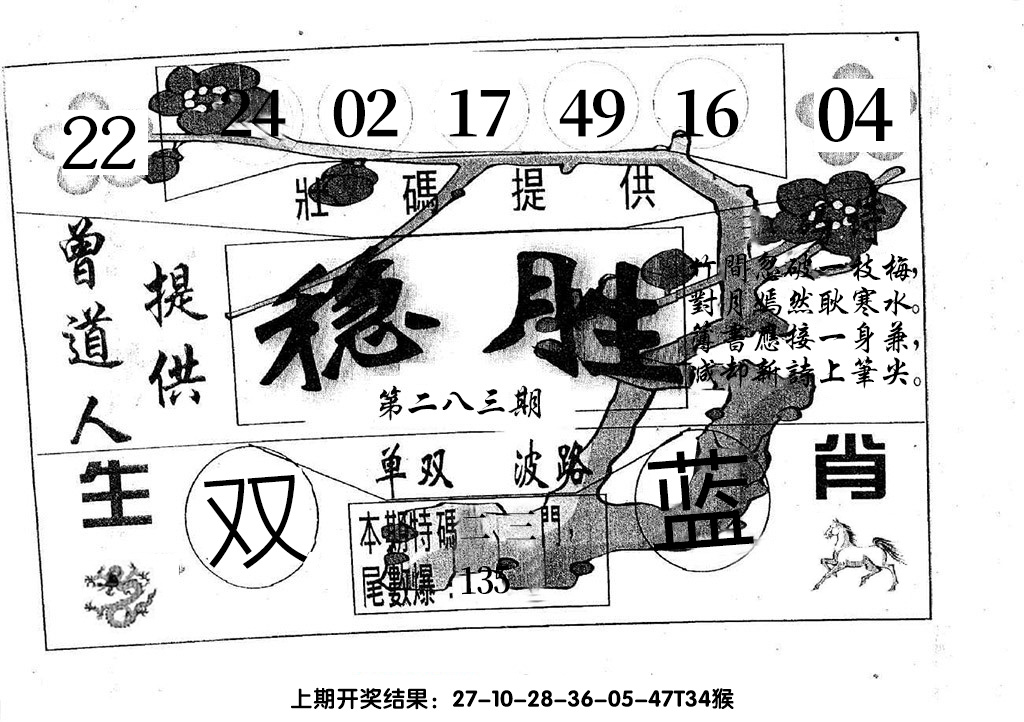 22 24 02 17 49 16 04
壯碼提供
曾道人
提供
稳胜
第二八三期
竹間忽破一枝梅，
對月嫣然耿寒水。
薄書應接一身兼，
減却新詩上筆尖。
单双 波路
生
双
蓝
肖
本期特碼二、三門，
尾數爆：135
上期开奖结果：27-10-28-36-05-47T34猴